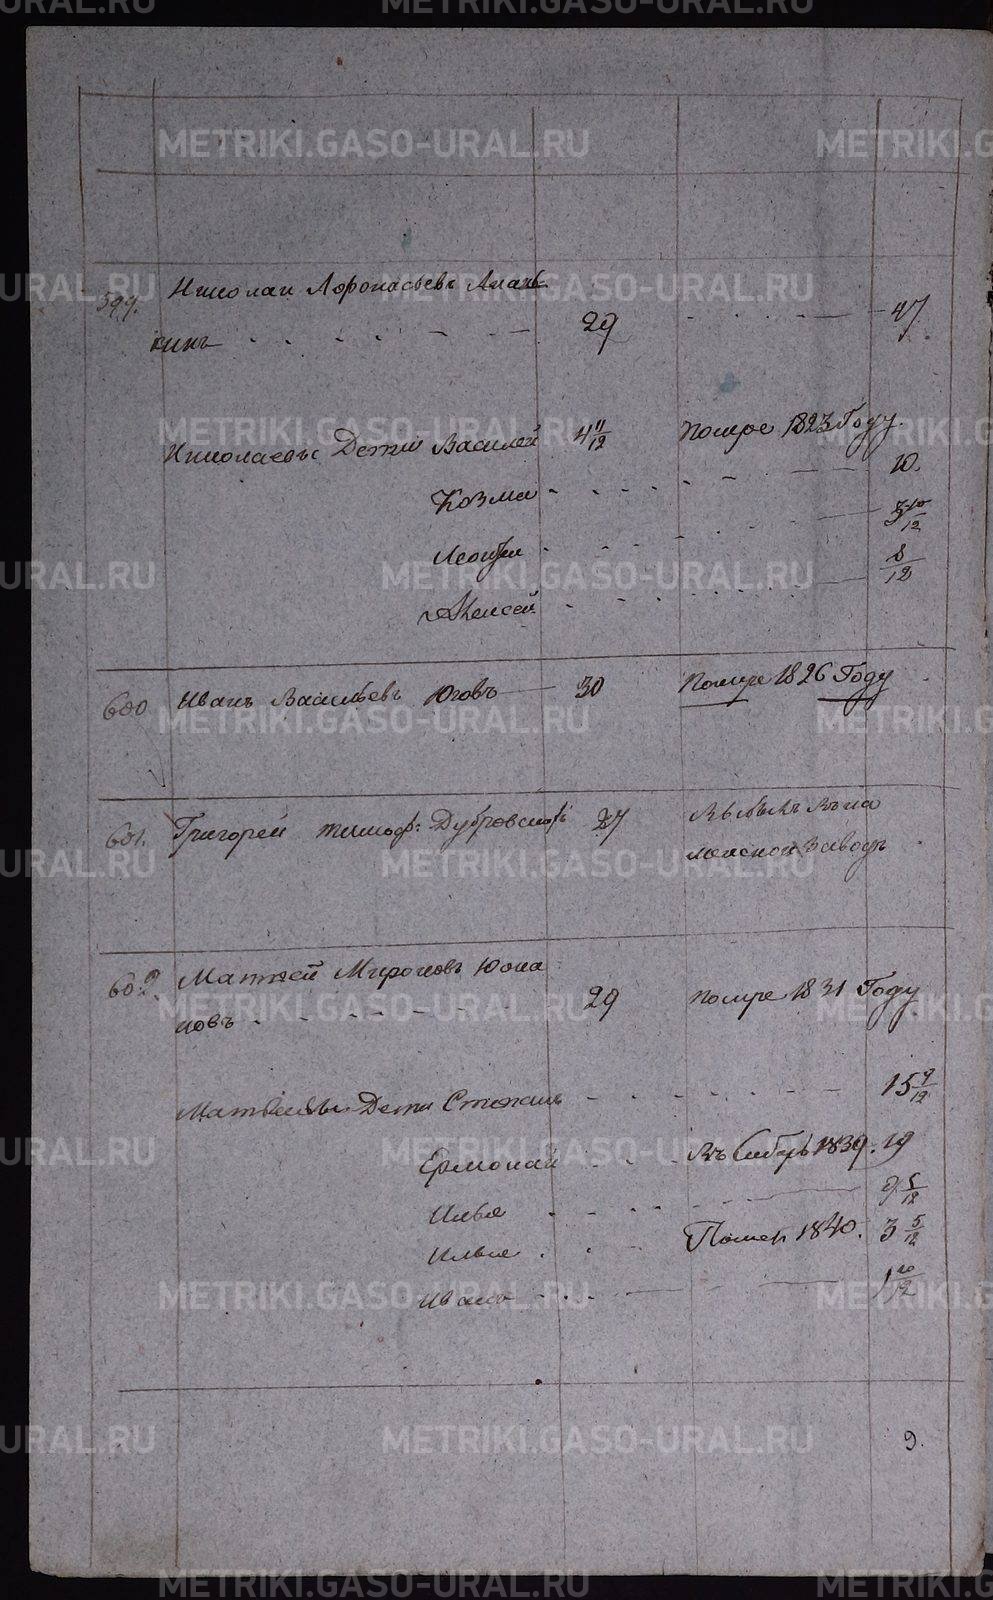 METRIKI.GASO-URAL.RU
599. Николаи Афонасьевъ Анань-
кинъ 29 47.
Николаевы Дети Василей 4 11/12 Помре 1823 Году.
Козма 10.
Леонтеи 3 10/12
Алексей 8/12
600 Иванъ Васильевъ Юговъ 30 Помре 1826 Году
601. Григорей тимоф: Дубровскихъ 27
заводъ
602. Матвей Мироновъ Юона
новъ 29 помре 1831 Году
Матвеевы Дети Степанъ 15 9/12
Ермолай Въ Сибирь 1839. 19
Илья 9 5/12
Илья Помер 1840. 3 5/12
Иванъ 1 10/12
9.